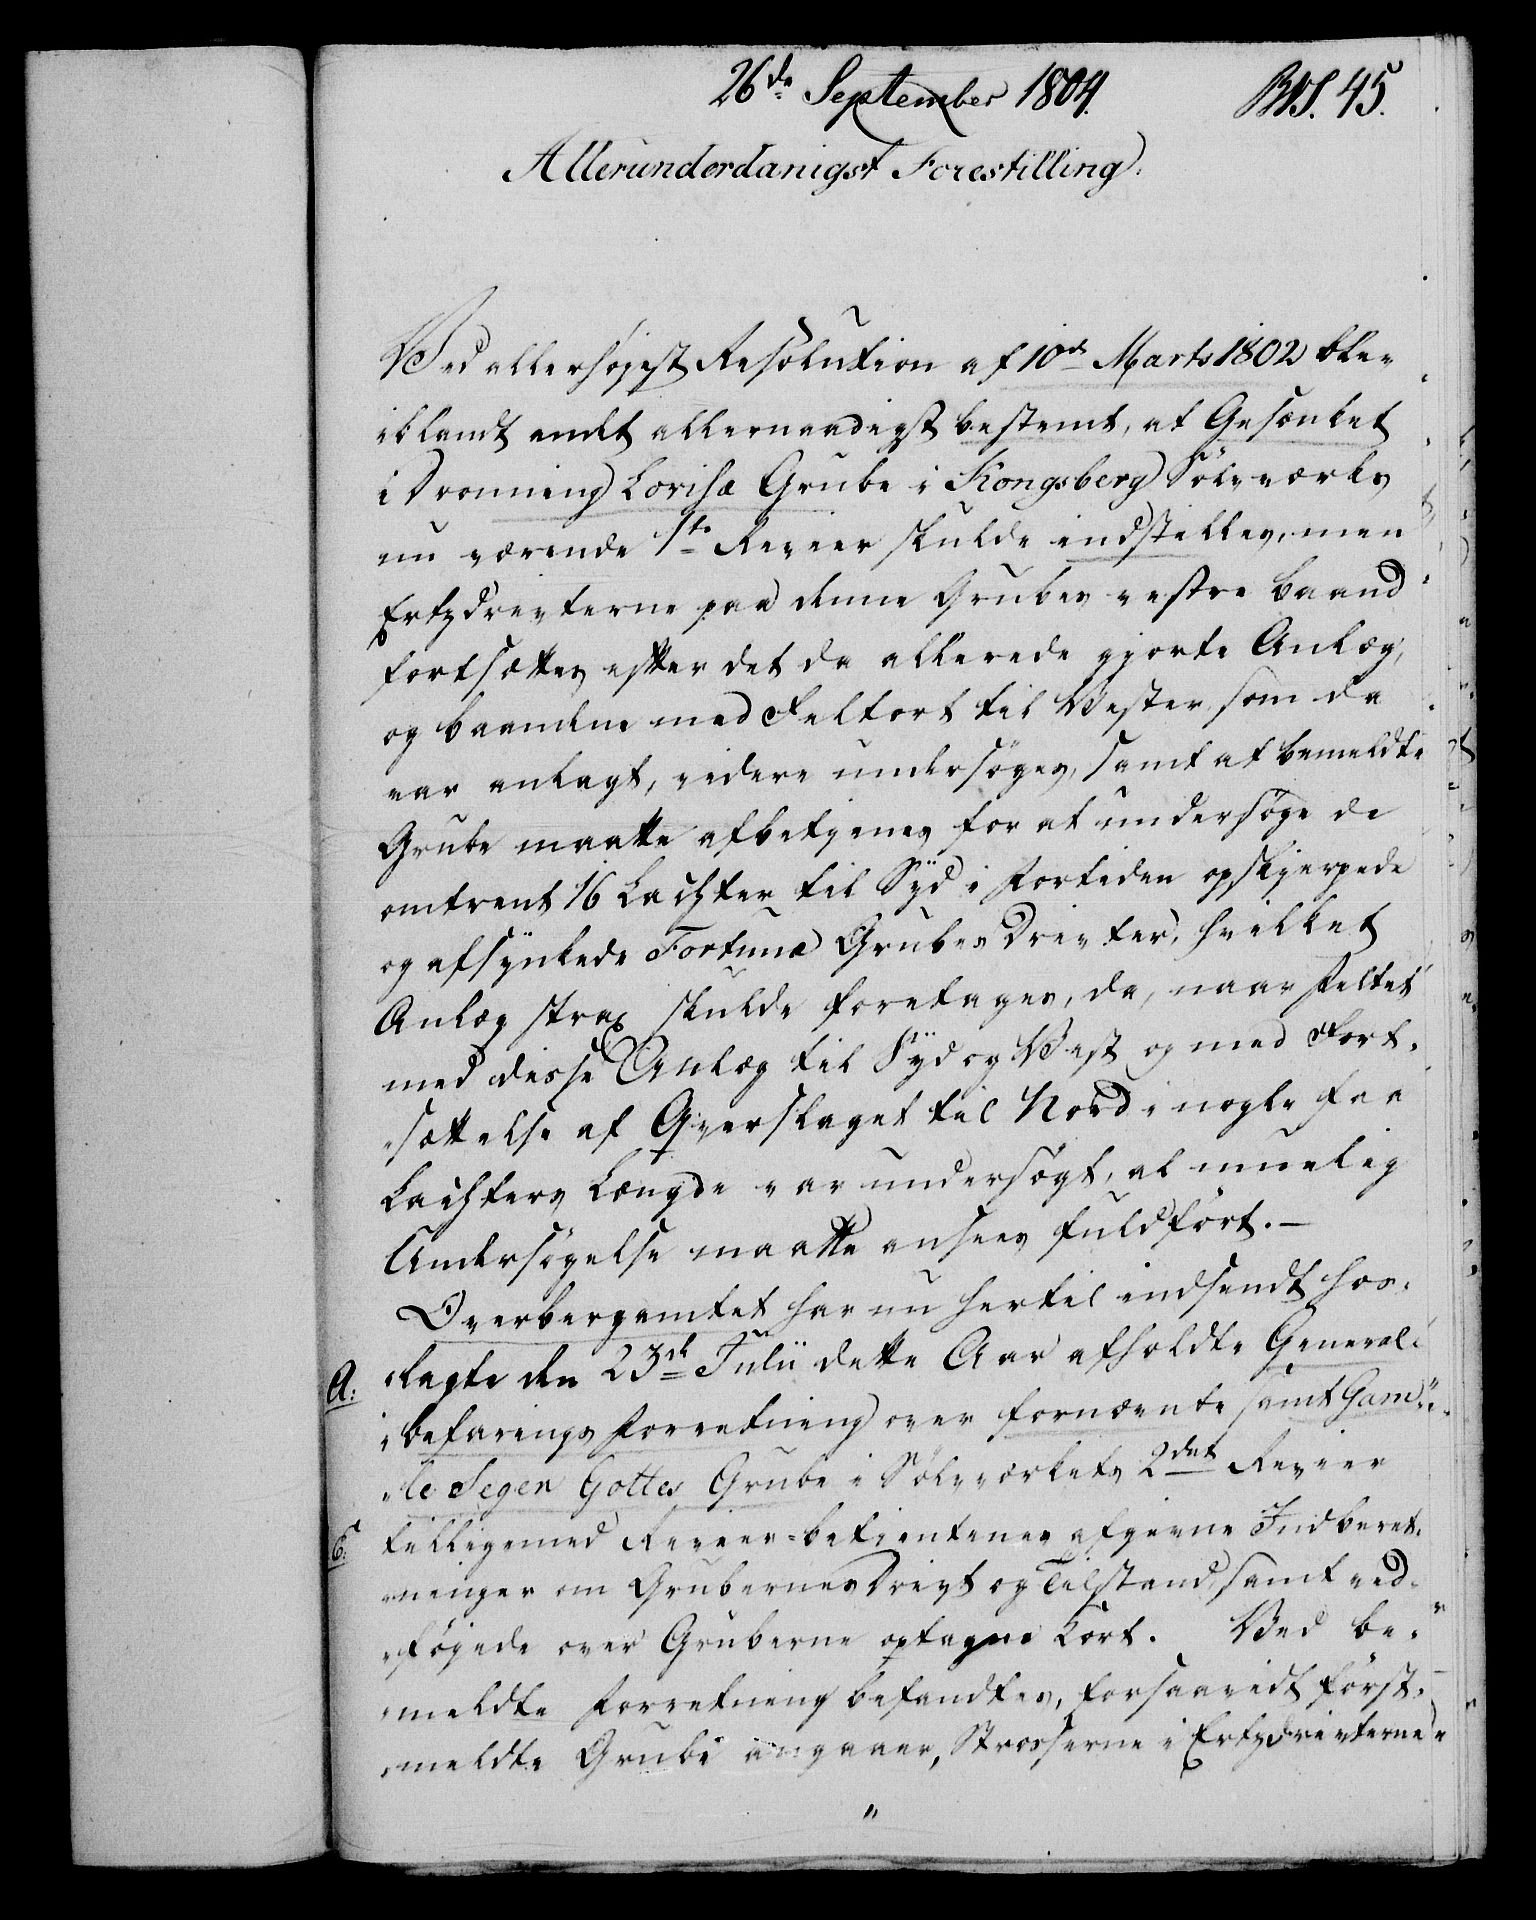 26de September 1804.
BVS. 45.
Allerunderdanigst Forestilling.
Ved allerhøyest Resolution af 10de Marts 1802 blev
iblandt andet allernaadigst bestemt, at Gesænket
i Dronning Lovisæ Grube i Kongsberg Sølvværks
nu værende 1te Revier skulde indstilles, men
Ertzdrevterne paa denne Grubes vestre baand
fortsættes efter det da allerede gjorte Anlæg,
og baandene med Feltort til Vester, som da
var anlagt, videre undersøges, samt at bemeldte
Grube maatte afbetjenes for at undersøge de
omtrent 16 Lachter til Syd i fortiden opskjerpede
og afsynkede Fortuna Grubes Drevter, hvilket
Anlæg strax skulde foretages, da, naar feltet
med disse Anlæg til Syd og Vest og med Fort-
sættelse af Qverslaget til Nord i nogle faa
Lachters Længde var undersøgt, al muelig
Undersøgelse maatte ansees fuldført. —
Overbergamtet har nu hertil indsendt hos-
A: lagte den 23de Julii dette Aar afholdte General-
befarings Forretning over fornævnte samt Gam-
le Segen Gottes Grube i Sølvværkets 2det Revier
B: tilligemed Revier-betienternes afgivne Indberet-
ninger om Grubernes Drivt og Tilstand, samt ved-
føyede over Gruberne optagne Kort. Ved be-
meldte Forretning befandtes, forsaavidt først-
meldte Grube angaaer, Strosserne i Ertzdrevterne
"